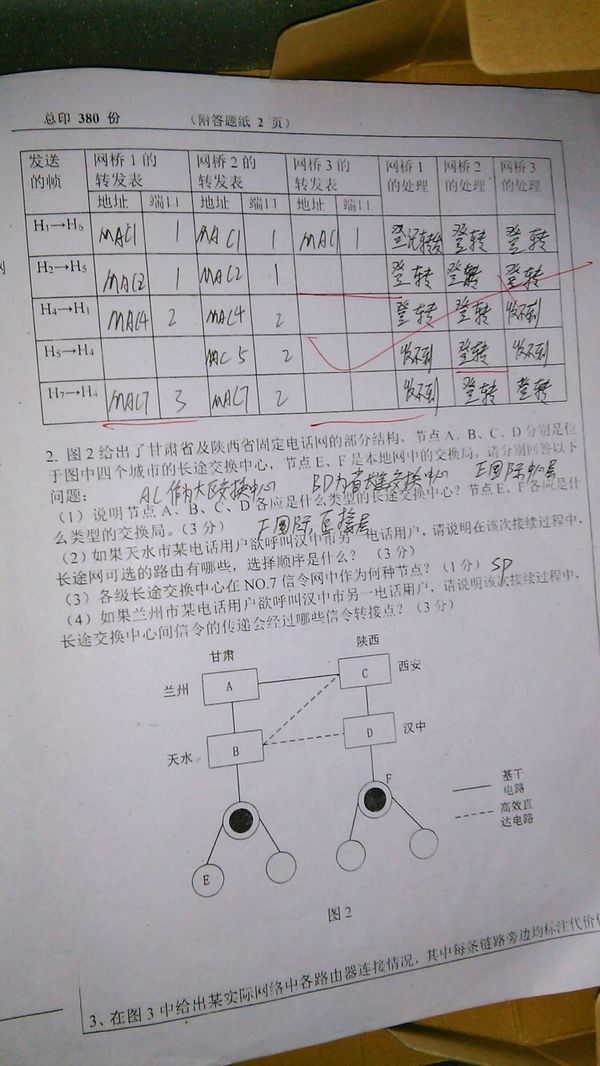 总印 380 份 （附答题纸 2 页）
发送的帧 网桥 1 的转发表 网桥 2 的转发表 网桥 3 的转发表 网桥 1 的处理 网桥 2 的处理 网桥 3 的处理
地址 端口 地址 端口 地址 端口
H₁→H₆ MAC1 1 MAC1 1 MAC1 1 登记转发 登转 登转
H₂→H₅ MAC2 1 MAC2 1 登转 登转 登转
H₄→H₁ MAC4 2 MAC4 2 登转 登转 收不到
H₅→H₄ MAC5 2 收不到 登转 收不到
H₇→H₄ MAC7 3 MAC7 2 收不到 登转 登转
2. 图 2 给出了甘肃省及陕西省固定电话网的部分结构，节点 A、B、C、D 分别是位
于图中四个城市的长途交换中心，节点 E、F 是本地网中的交换局。请分别回答以下
问题：
AC作为大区交换中心 BD为省
（1）说明节点 A、B、C、D 各应是什么类型的长途交换中心？节点 E、F 各应是什
么类型的交换局。（3 分）
（2）如果天水市某电话用户欲呼叫汉中市另一电话用户，请说明在该次接续过程中，
长途网可选的路由有哪些，选择顺序是什么？（3 分）
（3）各级长途交换中心在 NO.7 信令网中作为何种节点？（1 分） SP
（4）如果兰州市某电话用户欲呼叫汉中市另一电话用户，请说明该次接续过程中，
长途交换中心间信令的传递会经过哪些信令转接点？（3 分）
甘肃 陕西
兰州 A C 西安
天水 B D 汉中
F
E
基干电路
高效直达电路
图 2
3、在图 3 中给出某实际网络中各路由器连接情况，其中每条链路旁边均标注代价